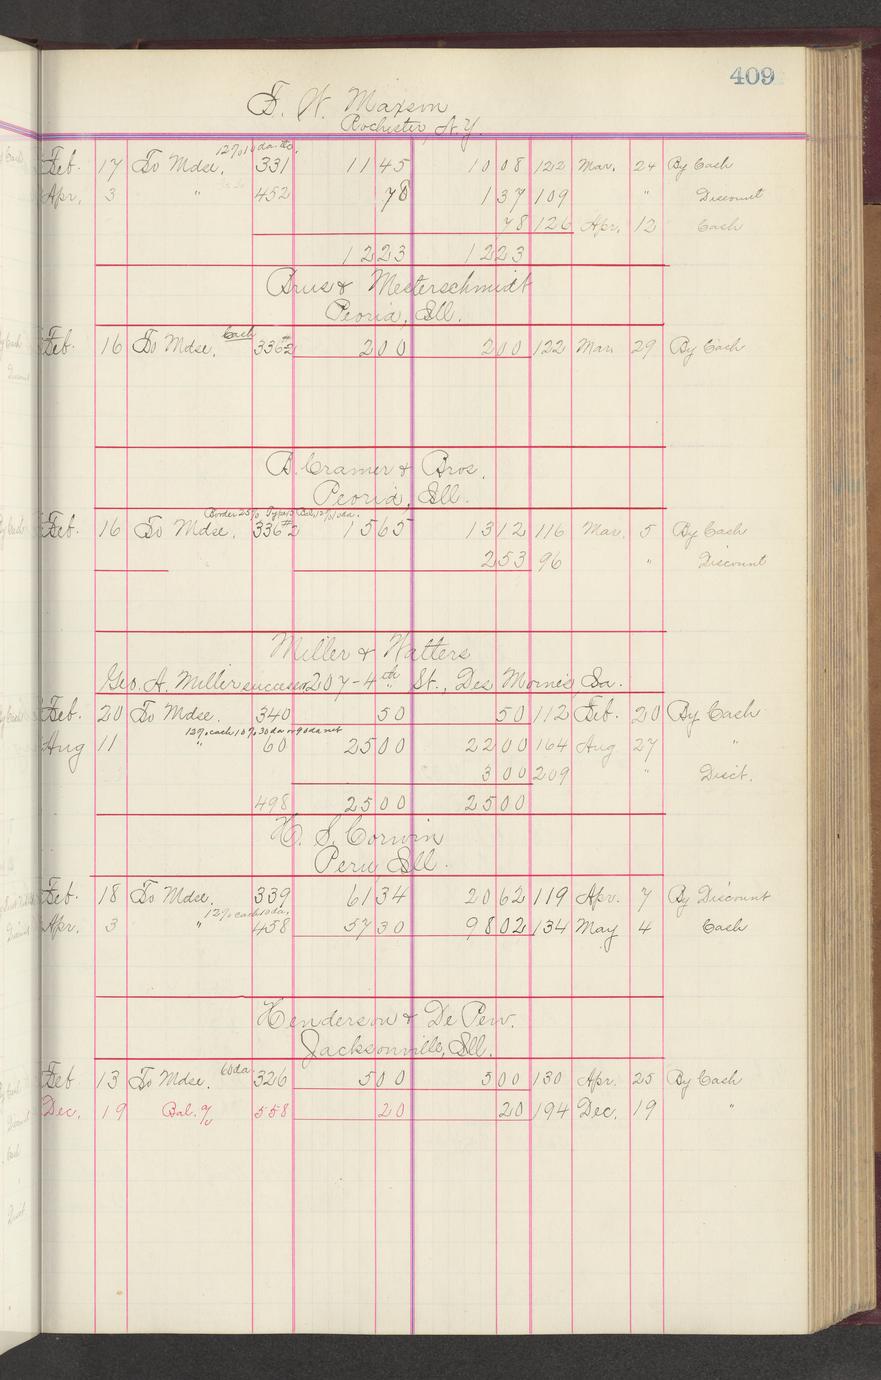 409
F. W. Maxson
Rochester, N.Y.
12% 10 da.
Feb. 17 To Mdse. 331 11 45 10 08 122 Mar. 24 By Cash
Apr. 3 " 452 78 1 37 109 " Discount
78 126 Apr. 12 Cash
12 23 12 23
Brus & Mesterschmidt
Peoria, Ill.
Cash
Feb. 16 To Mdse. 336#2 2 00 2 00 122 Mar 29 By Cash
B. Cramer & Bros.
Peoria, Ill.
Border 25% Type Bal. 12% 10 da.
Feb. 16 To Mdse. 336#2 15 65 13 12 116 Mar. 5 By Cash
2 53 96 " Discount
Miller & Watters
Geo. A. Miller successor 207-4th St., Des Moines, Ia.
Feb. 20 To Mdse. 340 50 50 112 Feb. 20 By Cash
12% cash 10% 30 da or 90 da net
Aug 11 " 60 25 00 22 00 164 Aug 27 "
3 00 209 " Disct.
498 25 00 25 00
H. S. Corwin
Peru Ill.
Feb. 18 To Mdse. 339 61 34 20 62 119 Apr. 7 By Discount
12% cash 10 da.
Apr. 3 " 458 57 30 98 02 134 May 4 Cash
Henderson & De Pew.
Jacksonville, Ill.
60 da
Feb 13 To Mdse. 326 5 00 5 00 130 Apr. 25 By Cash
Dec. 19 Bal. % 558 20 20 194 Dec. 19 "